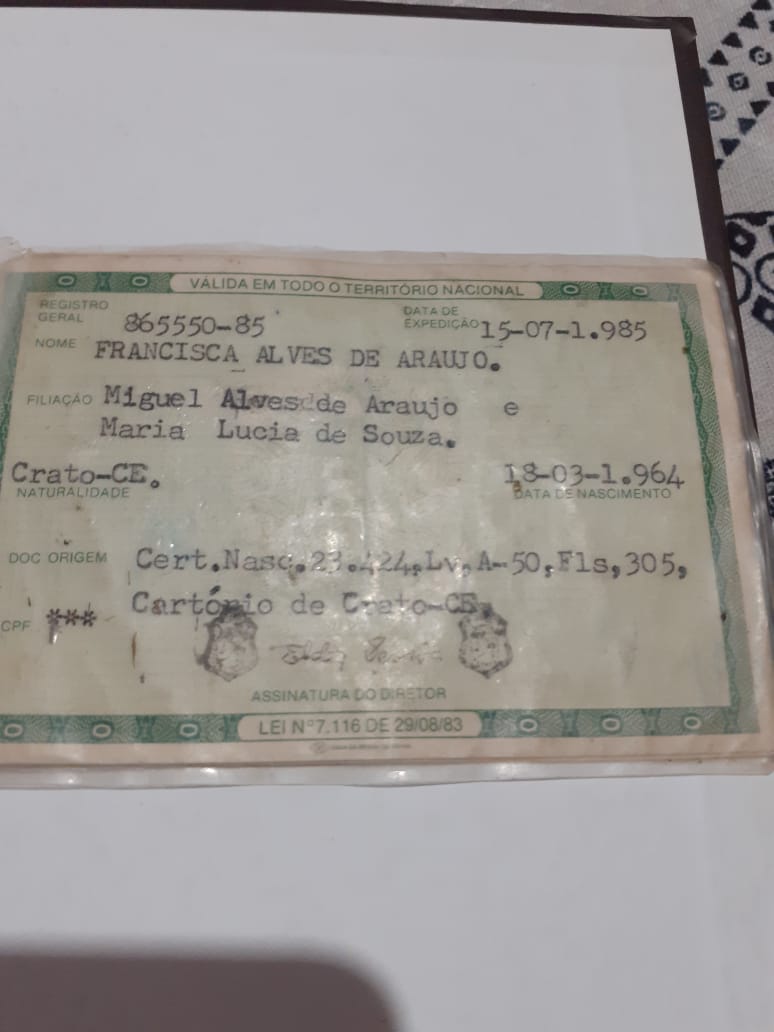 VÁLIDA EM TODO O TERRITÓRIO NACIONAL
REGISTRO GERAL 865550-85 DATA DE EXPEDIÇÃO 15-07-1.985
NOME FRANCISCA ALVES DE ARAUJO.
FILIAÇÃO Miguel Alves de Araujo e
Maria Lucia de Souza.
Crato-CE. 18-03-1.964
NATURALIDADE DATA DE NASCIMENTO
DOC ORIGEM Cert.Nasc.23.424,Lv,A-50,Fls,305,
Cartório de Crato-CE.
CPF ***
ASSINATURA DO DIRETOR
LEI Nº 7.116 DE 29/08/83